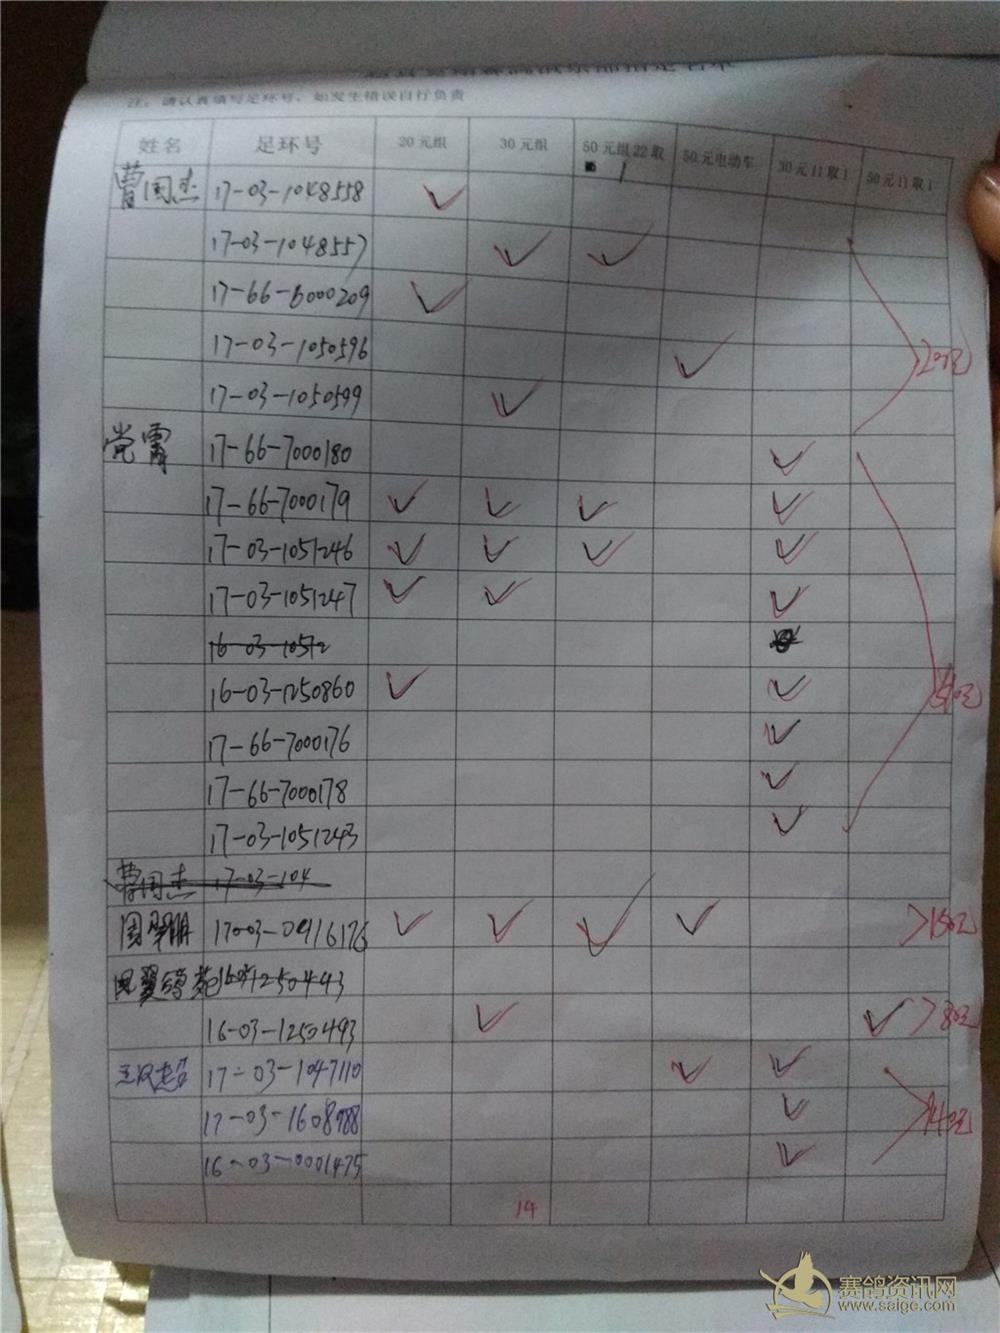 注：请认真填写足环号，如发生错误自行负责
姓名 足环号 20元组 30元组 50元组22取1 50元电动车 30元11取1 50元11取1
曹国杰 17-03-1048558 ✓
17-03-1048557 ✓ ✓
17-66-6000209 ✓
17-03-1050596 ✓
200元
17-03-1050599 ✓
党霄 17-66-7000180 ✓
17-66-7000179 ✓ ✓ ✓ ✓
17-03-1051246 ✓ ✓ ✓ ✓
17-03-1051247 ✓ ✓ ✓
16-03-10512
16-03-1250860 ✓ ✓
510元
17-66-7000176 ✓
17-66-7000178 ✓
17-03-1051243 ✓
曹国杰 17-03-104
17-03-0916176 ✓ ✓ ✓ ✓ >150元
16-03-1250493 ✓ ✓ >80元
17-03-1047110 ✓ ✓
✓ 140元
16-03-0001475 ✓
14
赛鸽资讯网
www.saige.com